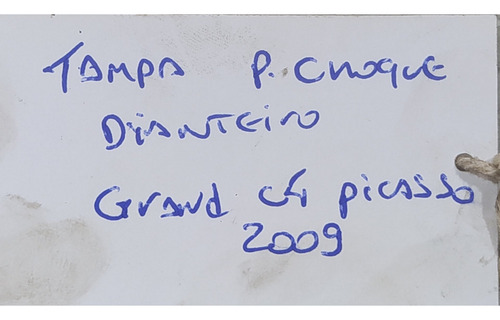 TAMPA P. CHOQUE
DIANTEIRO
Grand C4 picasso
2009